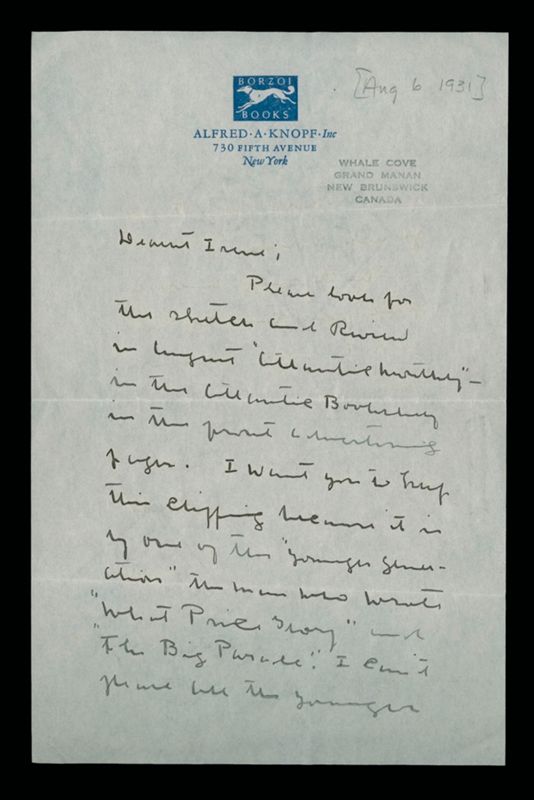 BORZOI
BOOKS
ALFRED · A · KNOPF · Inc
730 FIFTH AVENUE
New York
[Aug 6 1931]
WHALE COVE
GRAND MANAN
NEW BRUNSWICK
CANADA
Dearest Irene;
Please look for
the sketch and Review
in August "Atlantic Monthly" —
in the Atlantic Bookshelf
in the front advertising
pages. I want you to keep
this clipping because it is
by one of the "younger gener-
ation" the man who wrote
"What Price Glory" and
"The Big Parade." I can't
please all the younger